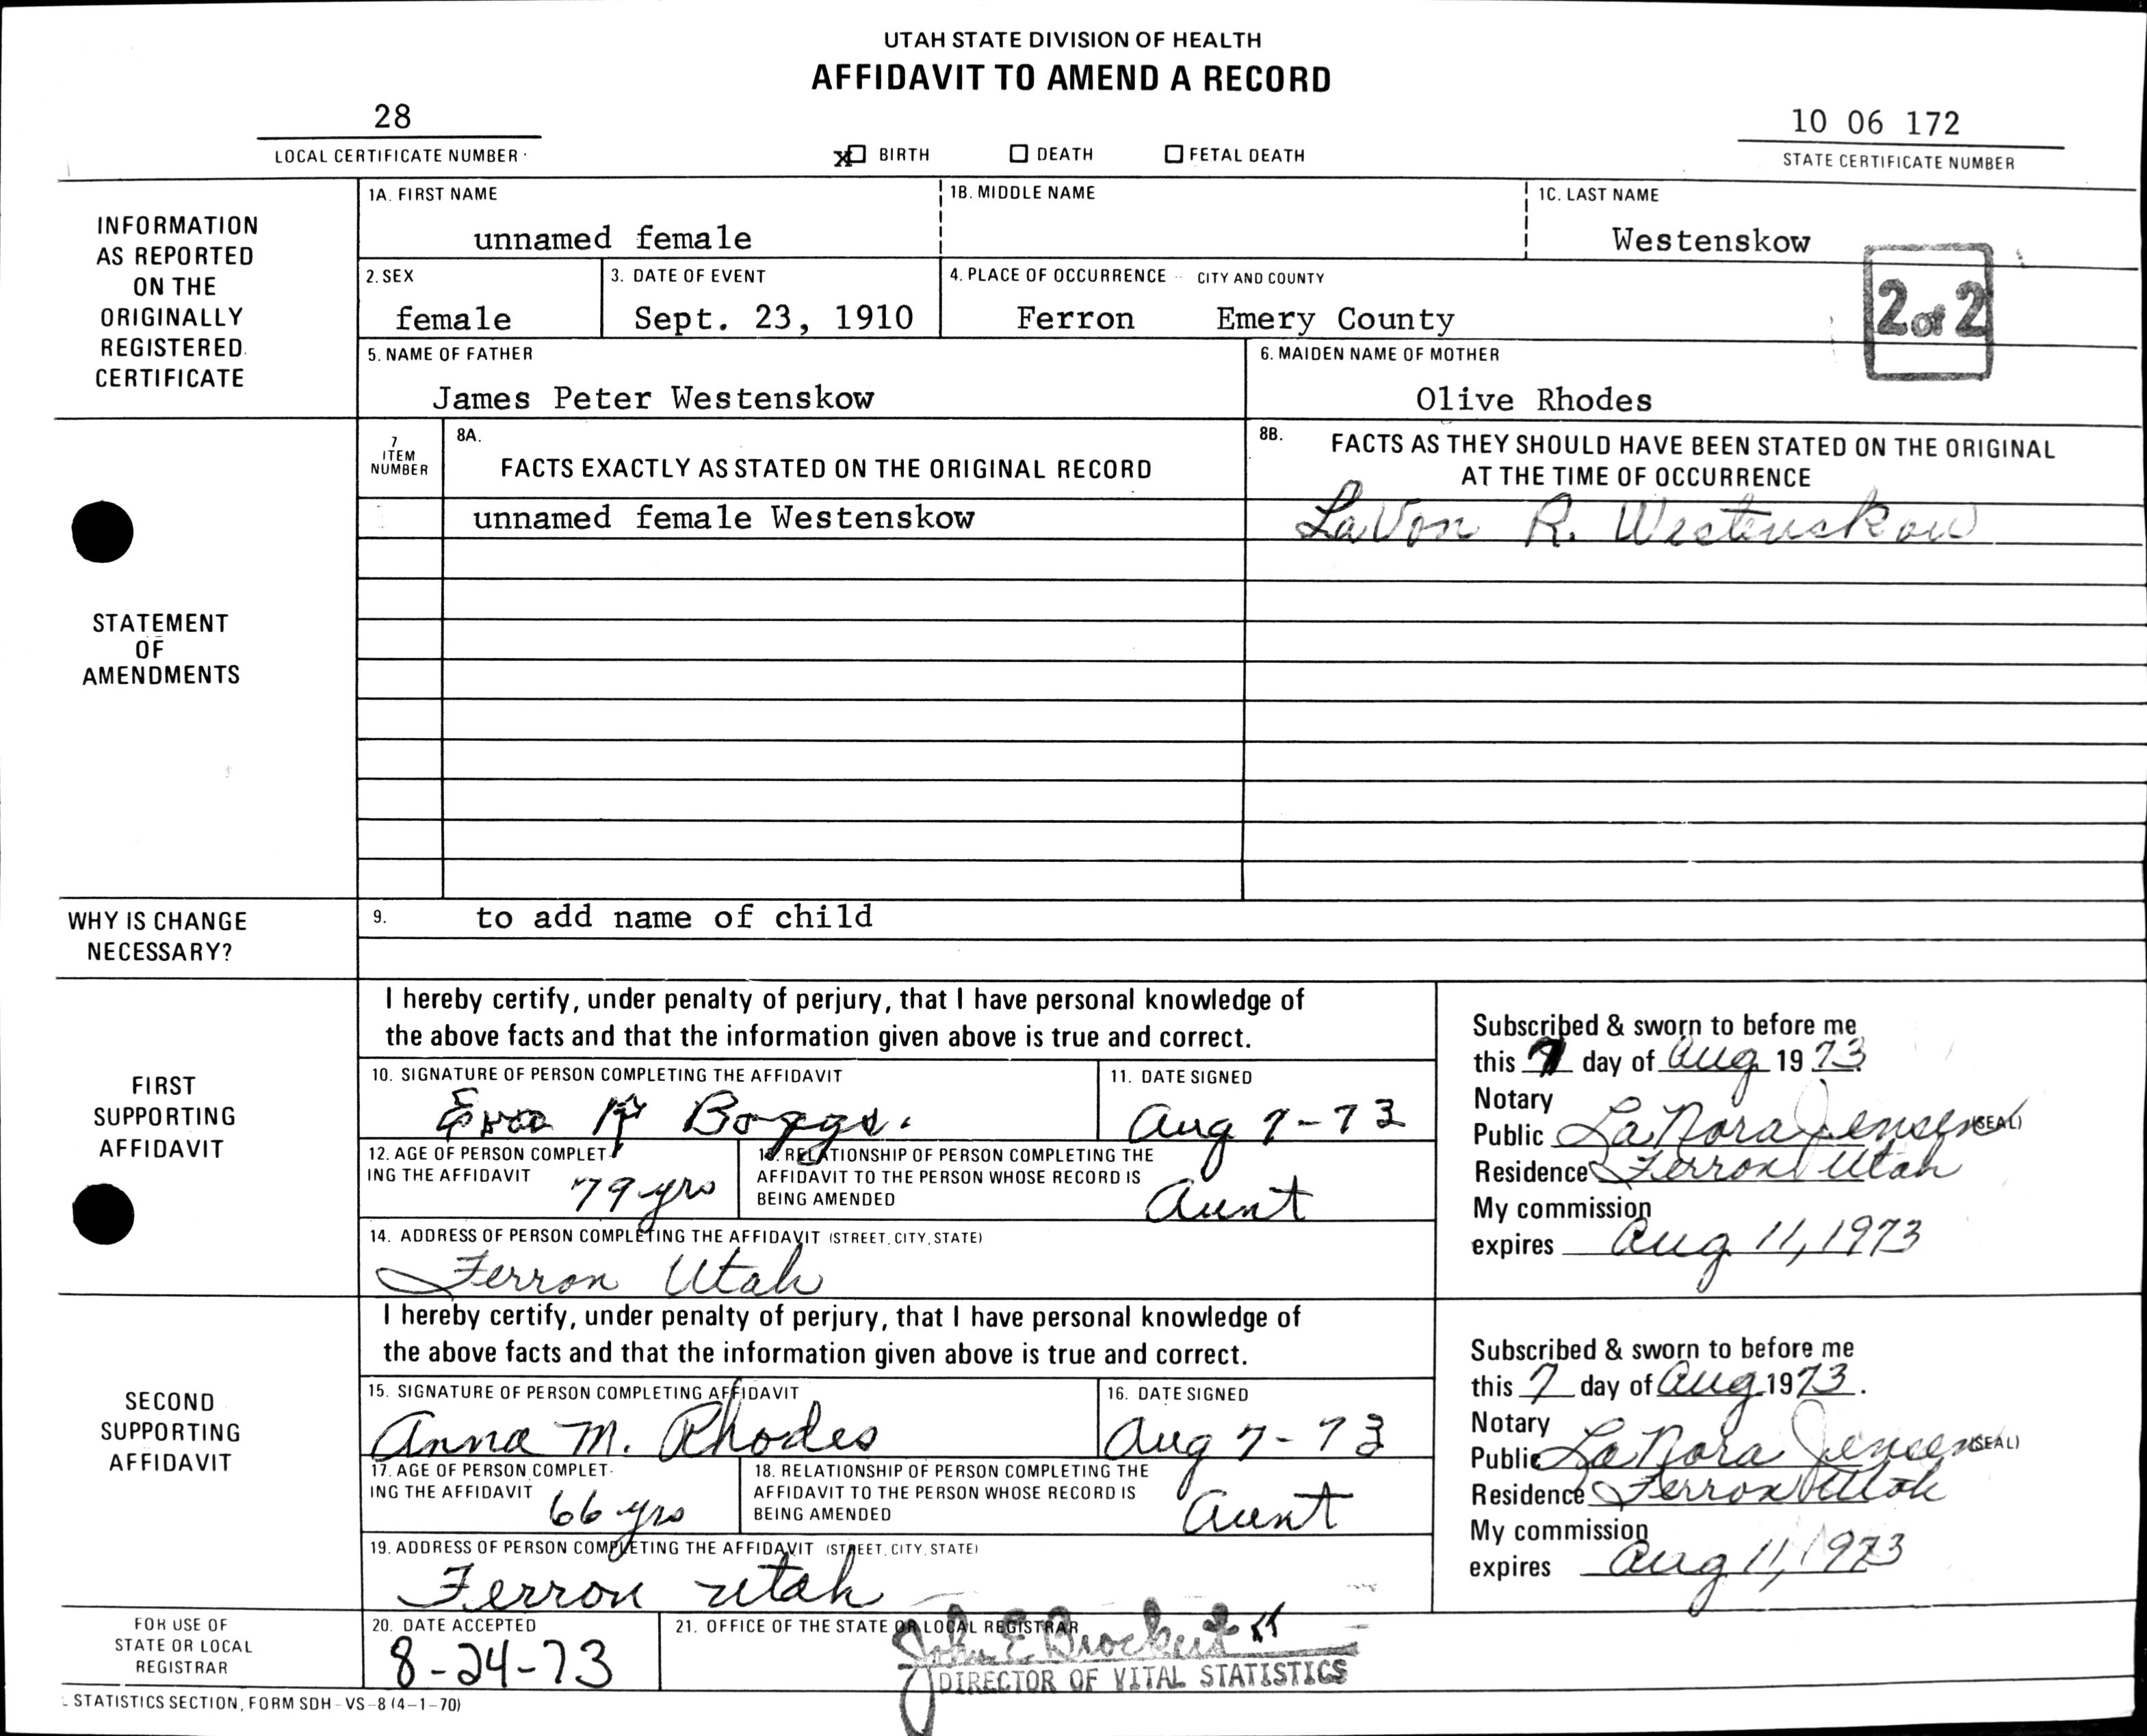 UTAH STATE DIVISION OF HEALTH
AFFIDAVIT TO AMEND A RECORD
28
LOCAL CERTIFICATE NUMBER
X BIRTH DEATH FETAL DEATH
10 06 172
STATE CERTIFICATE NUMBER
INFORMATION
AS REPORTED
ON THE
ORIGINALLY
REGISTERED
CERTIFICATE
1A. FIRST NAME 1B. MIDDLE NAME 1C. LAST NAME
unnamed female Westenskow
2. SEX 3. DATE OF EVENT 4. PLACE OF OCCURRENCE CITY AND COUNTY
female Sept. 23, 1910 Ferron Emery County
2 of 2
5. NAME OF FATHER 6. MAIDEN NAME OF MOTHER
James Peter Westenskow Olive Rhodes
STATEMENT
OF
AMENDMENTS
7
ITEM
NUMBER
8A.
FACTS EXACTLY AS STATED ON THE ORIGINAL RECORD
8B. FACTS AS THEY SHOULD HAVE BEEN STATED ON THE ORIGINAL
AT THE TIME OF OCCURRENCE
unnamed female Westenskow LaVon R. Westenskow
WHY IS CHANGE
NECESSARY?
9. to add name of child
FIRST
SUPPORTING
AFFIDAVIT
I hereby certify, under penalty of perjury, that I have personal knowledge of
the above facts and that the information given above is true and correct.
10. SIGNATURE OF PERSON COMPLETING THE AFFIDAVIT 11. DATE SIGNED
Eva R Boggs. Aug 7-73
12. AGE OF PERSON COMPLET-
ING THE AFFIDAVIT 79 yrs
13. RELATIONSHIP OF PERSON COMPLETING THE
AFFIDAVIT TO THE PERSON WHOSE RECORD IS
BEING AMENDED Aunt
14. ADDRESS OF PERSON COMPLETING THE AFFIDAVIT (STREET, CITY, STATE)
Ferron Utah
Subscribed & sworn to before me
this 7 day of Aug 1973
Notary
Public LaNora Jensen (SEAL)
Residence Ferron Utah
My commission
expires Aug 11, 1973
SECOND
SUPPORTING
AFFIDAVIT
I hereby certify, under penalty of perjury, that I have personal knowledge of
the above facts and that the information given above is true and correct.
15. SIGNATURE OF PERSON COMPLETING AFFIDAVIT 16. DATE SIGNED
Anna M. Rhodes Aug 7-73
17. AGE OF PERSON COMPLET-
ING THE AFFIDAVIT 66 yrs
18. RELATIONSHIP OF PERSON COMPLETING THE
AFFIDAVIT TO THE PERSON WHOSE RECORD IS
BEING AMENDED Aunt
19. ADDRESS OF PERSON COMPLETING THE AFFIDAVIT (STREET, CITY, STATE)
Ferron Utah
Subscribed & sworn to before me
this 7 day of Aug 1973.
Notary
Public LaNora Jensen (SEAL)
Residence Ferron Utah
My commission
expires Aug 11, 1973
FOR USE OF
STATE OR LOCAL
REGISTRAR
20. DATE ACCEPTED
8-24-73
21. OFFICE OF THE STATE OR LOCAL REGISTRAR
John E. Brockert
DIRECTOR OF VITAL STATISTICS
STATISTICS SECTION, FORM SDH-VS-8 (4-1-70)